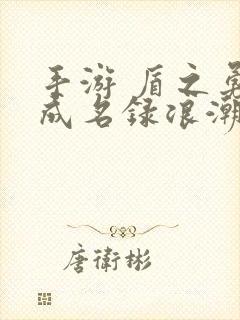 手游 盾之勇
成名录浪潮
唐衛彬